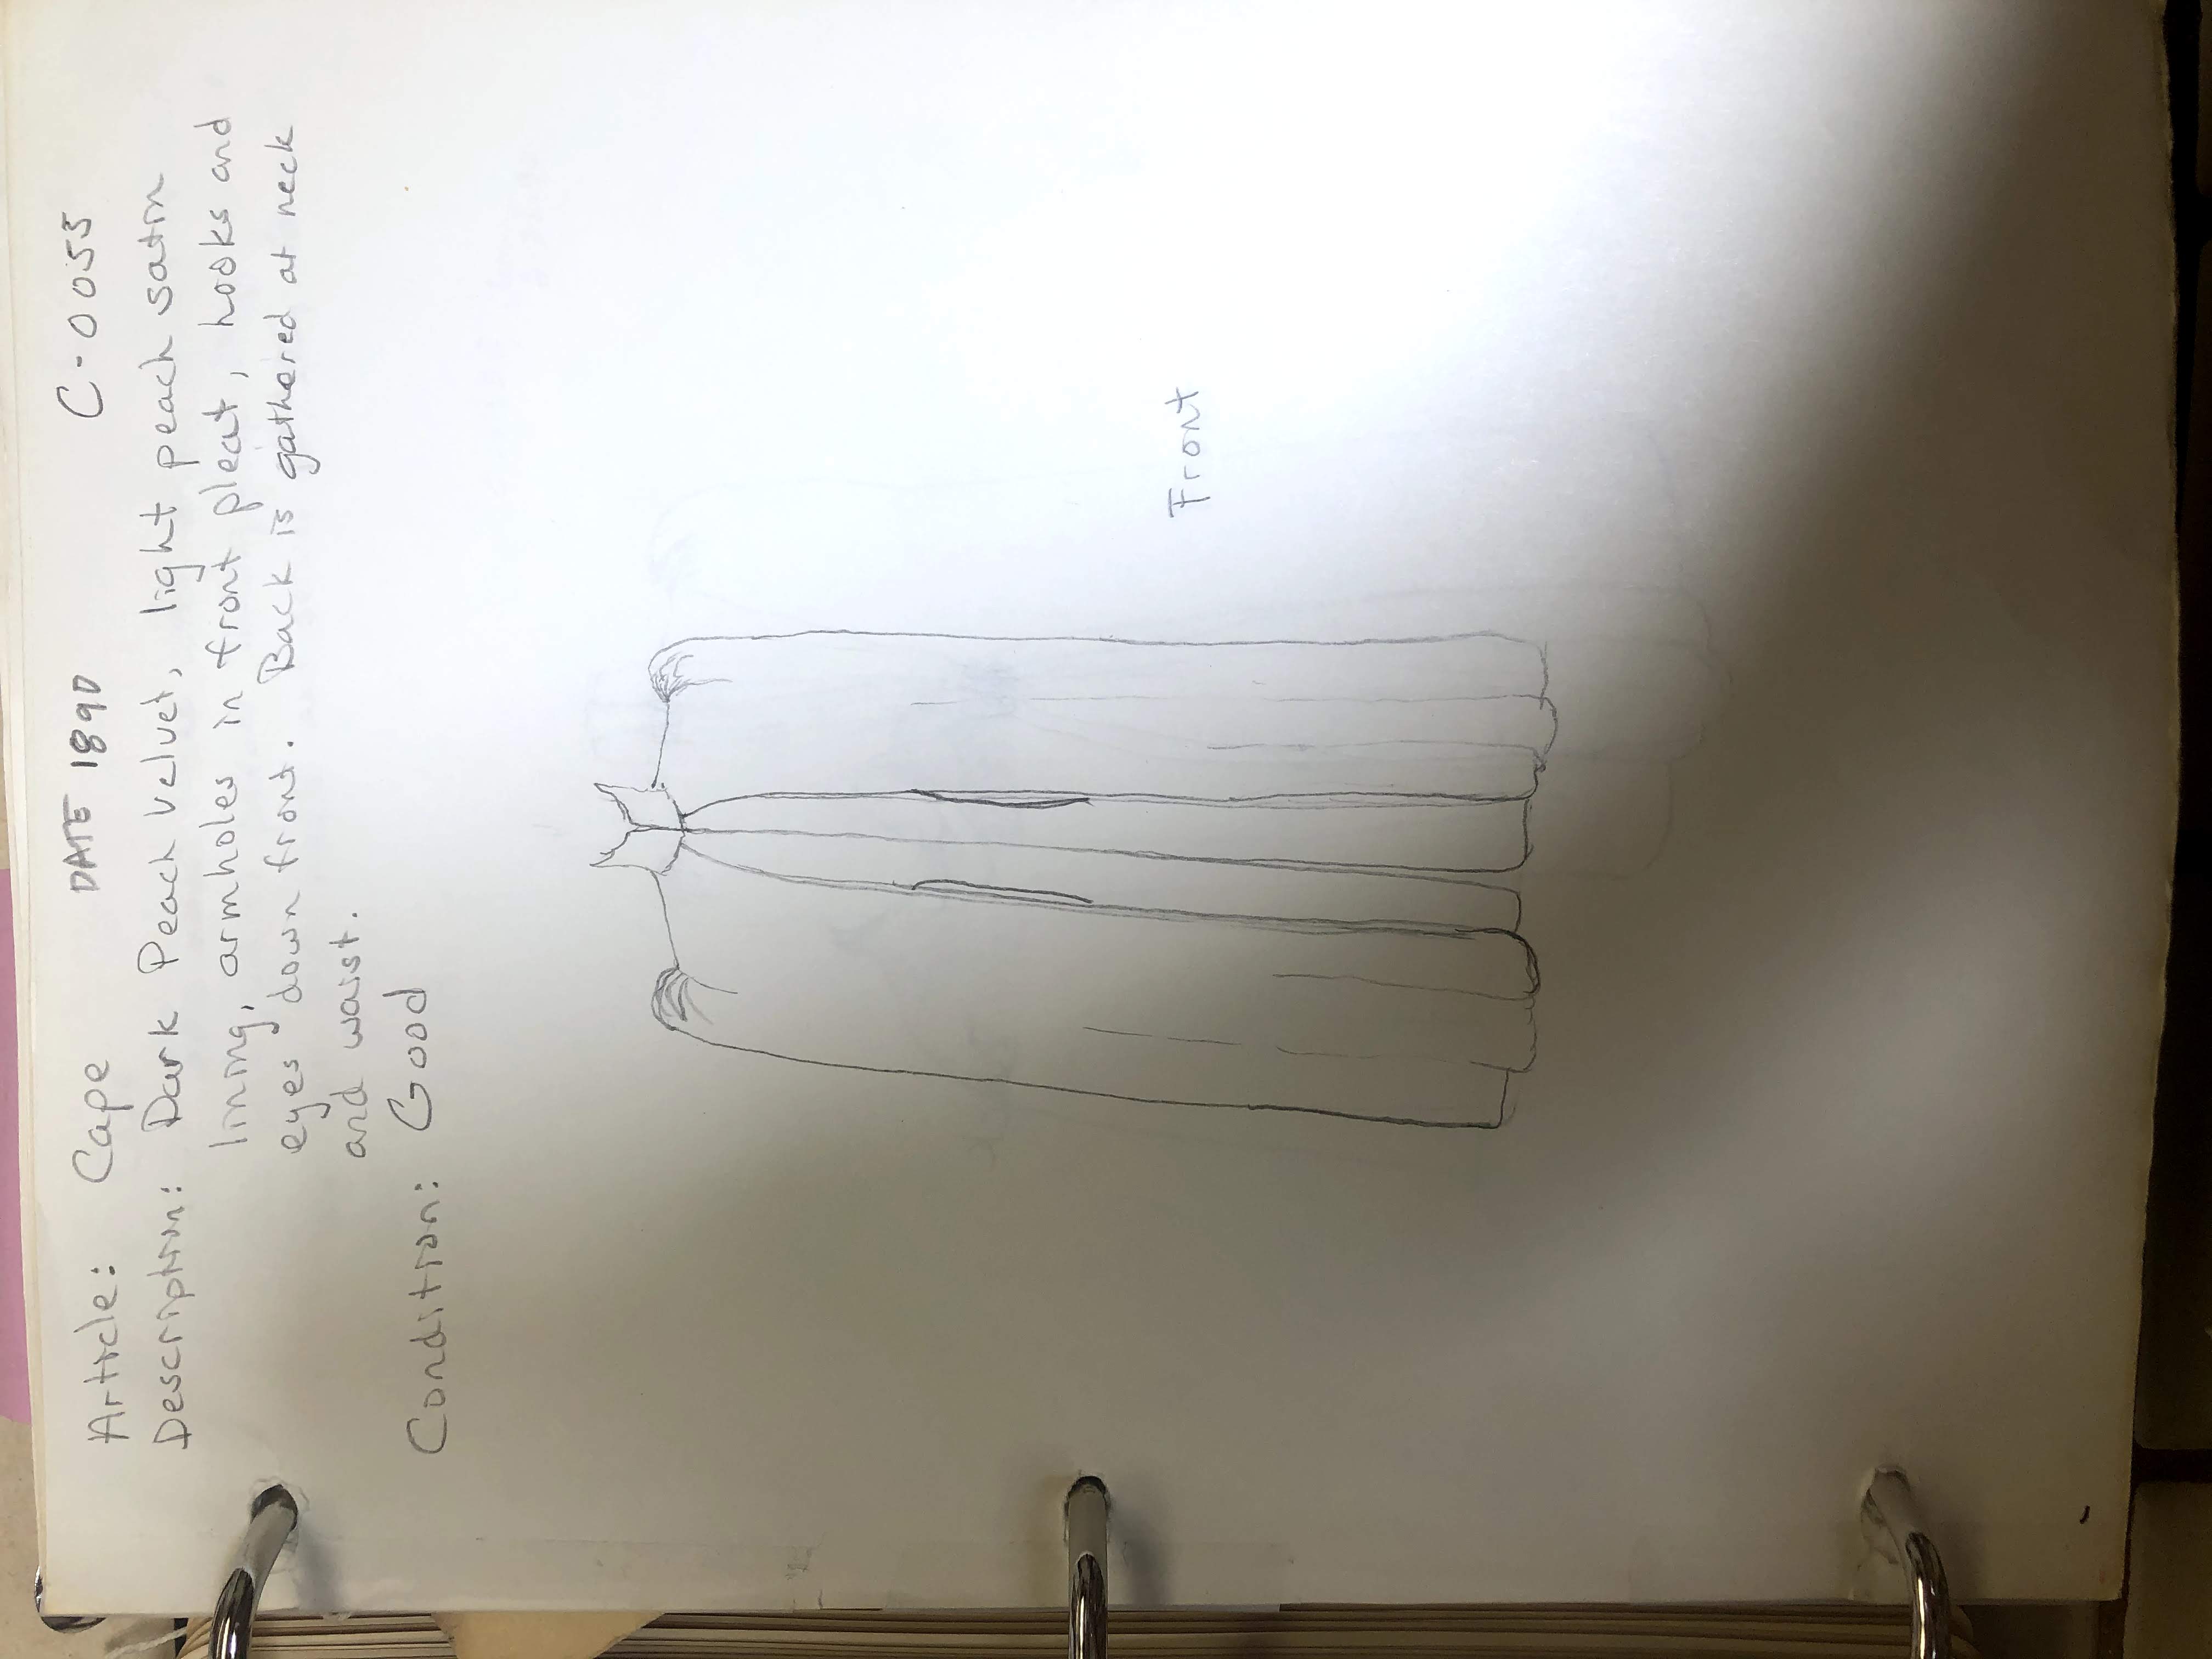 Article: Cape DATE 1890 C-0055
Description: Dark Peach Velvet, light peach satin
lining, armholes in front pleat, hooks and
eyes down front. Back is gathered at neck
and waist.
Condition: Good
Front